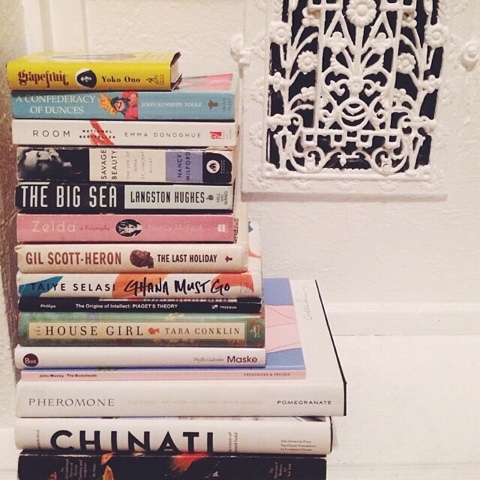 grapefruit Yoko Ono
A CONFEDERACY OF DUNCES JOHN KENNEDY TOOLE
ROOM EMMA DONOGHUE
SAVAGE BEAUTY NANCY MILFORD
THE BIG SEA LANGSTON HUGHES
Zelda a biography Nancy Milford
GIL SCOTT-HERON THE LAST HOLIDAY
TAIYE SELASI GHANA MUST GO
Phillips The Origins of Intellect: PIAGET'S THEORY FREEMAN
the HOUSE GIRL TARA CONKLIN
Maske
PHEROMONE POMEGRANATE
CHINATI